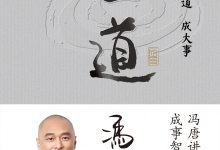 道 成大事
道
冯唐讲
成事智
冯